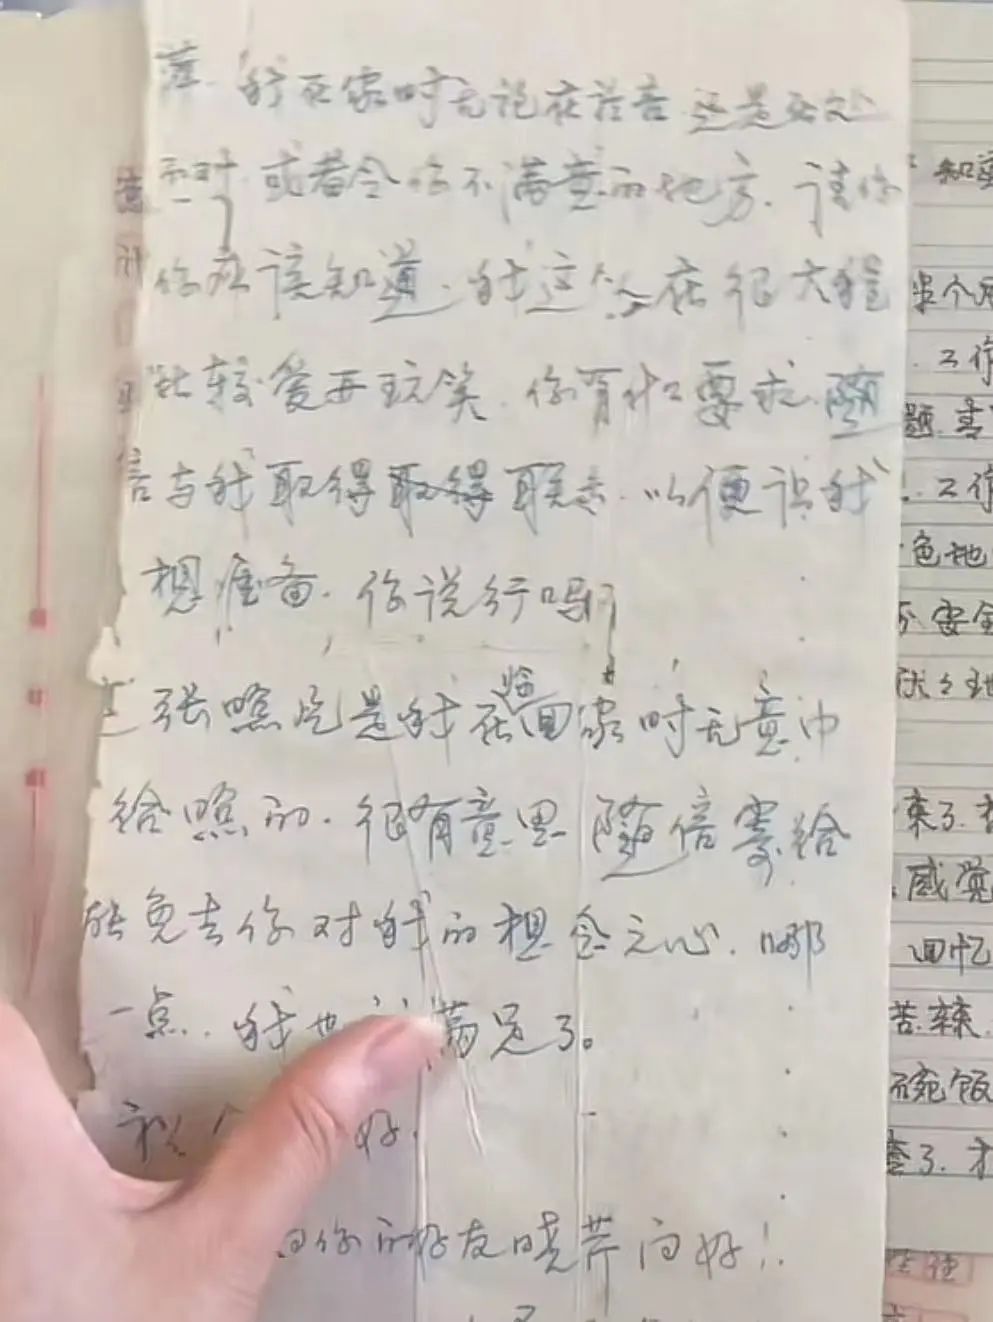 萍.我在家时无论在语言.还是在处
或者令你不满意的地方.请你
你应该知道.我这个人在很大程
比较爱开玩笑.你有什么要求.随
信与我取得取得联系.以便让我
想准备.你说行吗
这张照片是我在临回家时无意中
给照的.很有意思随信寄给
能免去你对我的想念之心.哪
一点.我也 满足了。
祝 好.
向你的好友晓芹问好!
知
半个月
.工作
题.
.工作
色地
不安全
来了.
感觉
回忆
苦辣
碗饭
了.才